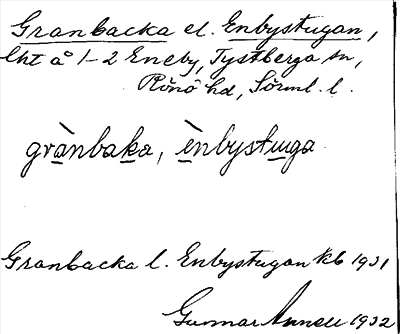 Granbacka el. Enbystugan,
lht å 1–2 Eneby, Tystberga sn,
Rönö hd, Sörml. l.
grànbaka, ènbystuga
Granbacka l. Enbystugan Kb 1931
Gunnar 1932